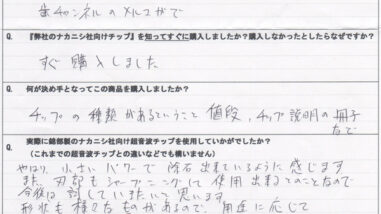 歯チャンネルのメルマガで
Q. 『弊社のナカニシ社向けチップ』を知ってすぐに購入しましたか？購入しなかったとしたらなぜですか？
すぐ購入しました
Q. 何が決め手となってこの商品を購入しましたか？
チップの種類があるということ 値段、チップ説明の冊子
などで
Q. 実際に錦部製のナカニシ社向け超音波チップを使用していかがでしたか？
（これまでの超音波チップとの違いなどでも構いません）
やはり、小さいパワーで除石出来ているように感じます
また、刃部もシャープニングして使用出来るとのことなので
今後は試していきたいと思います
形状も様々なものがあるので、用途に応じて